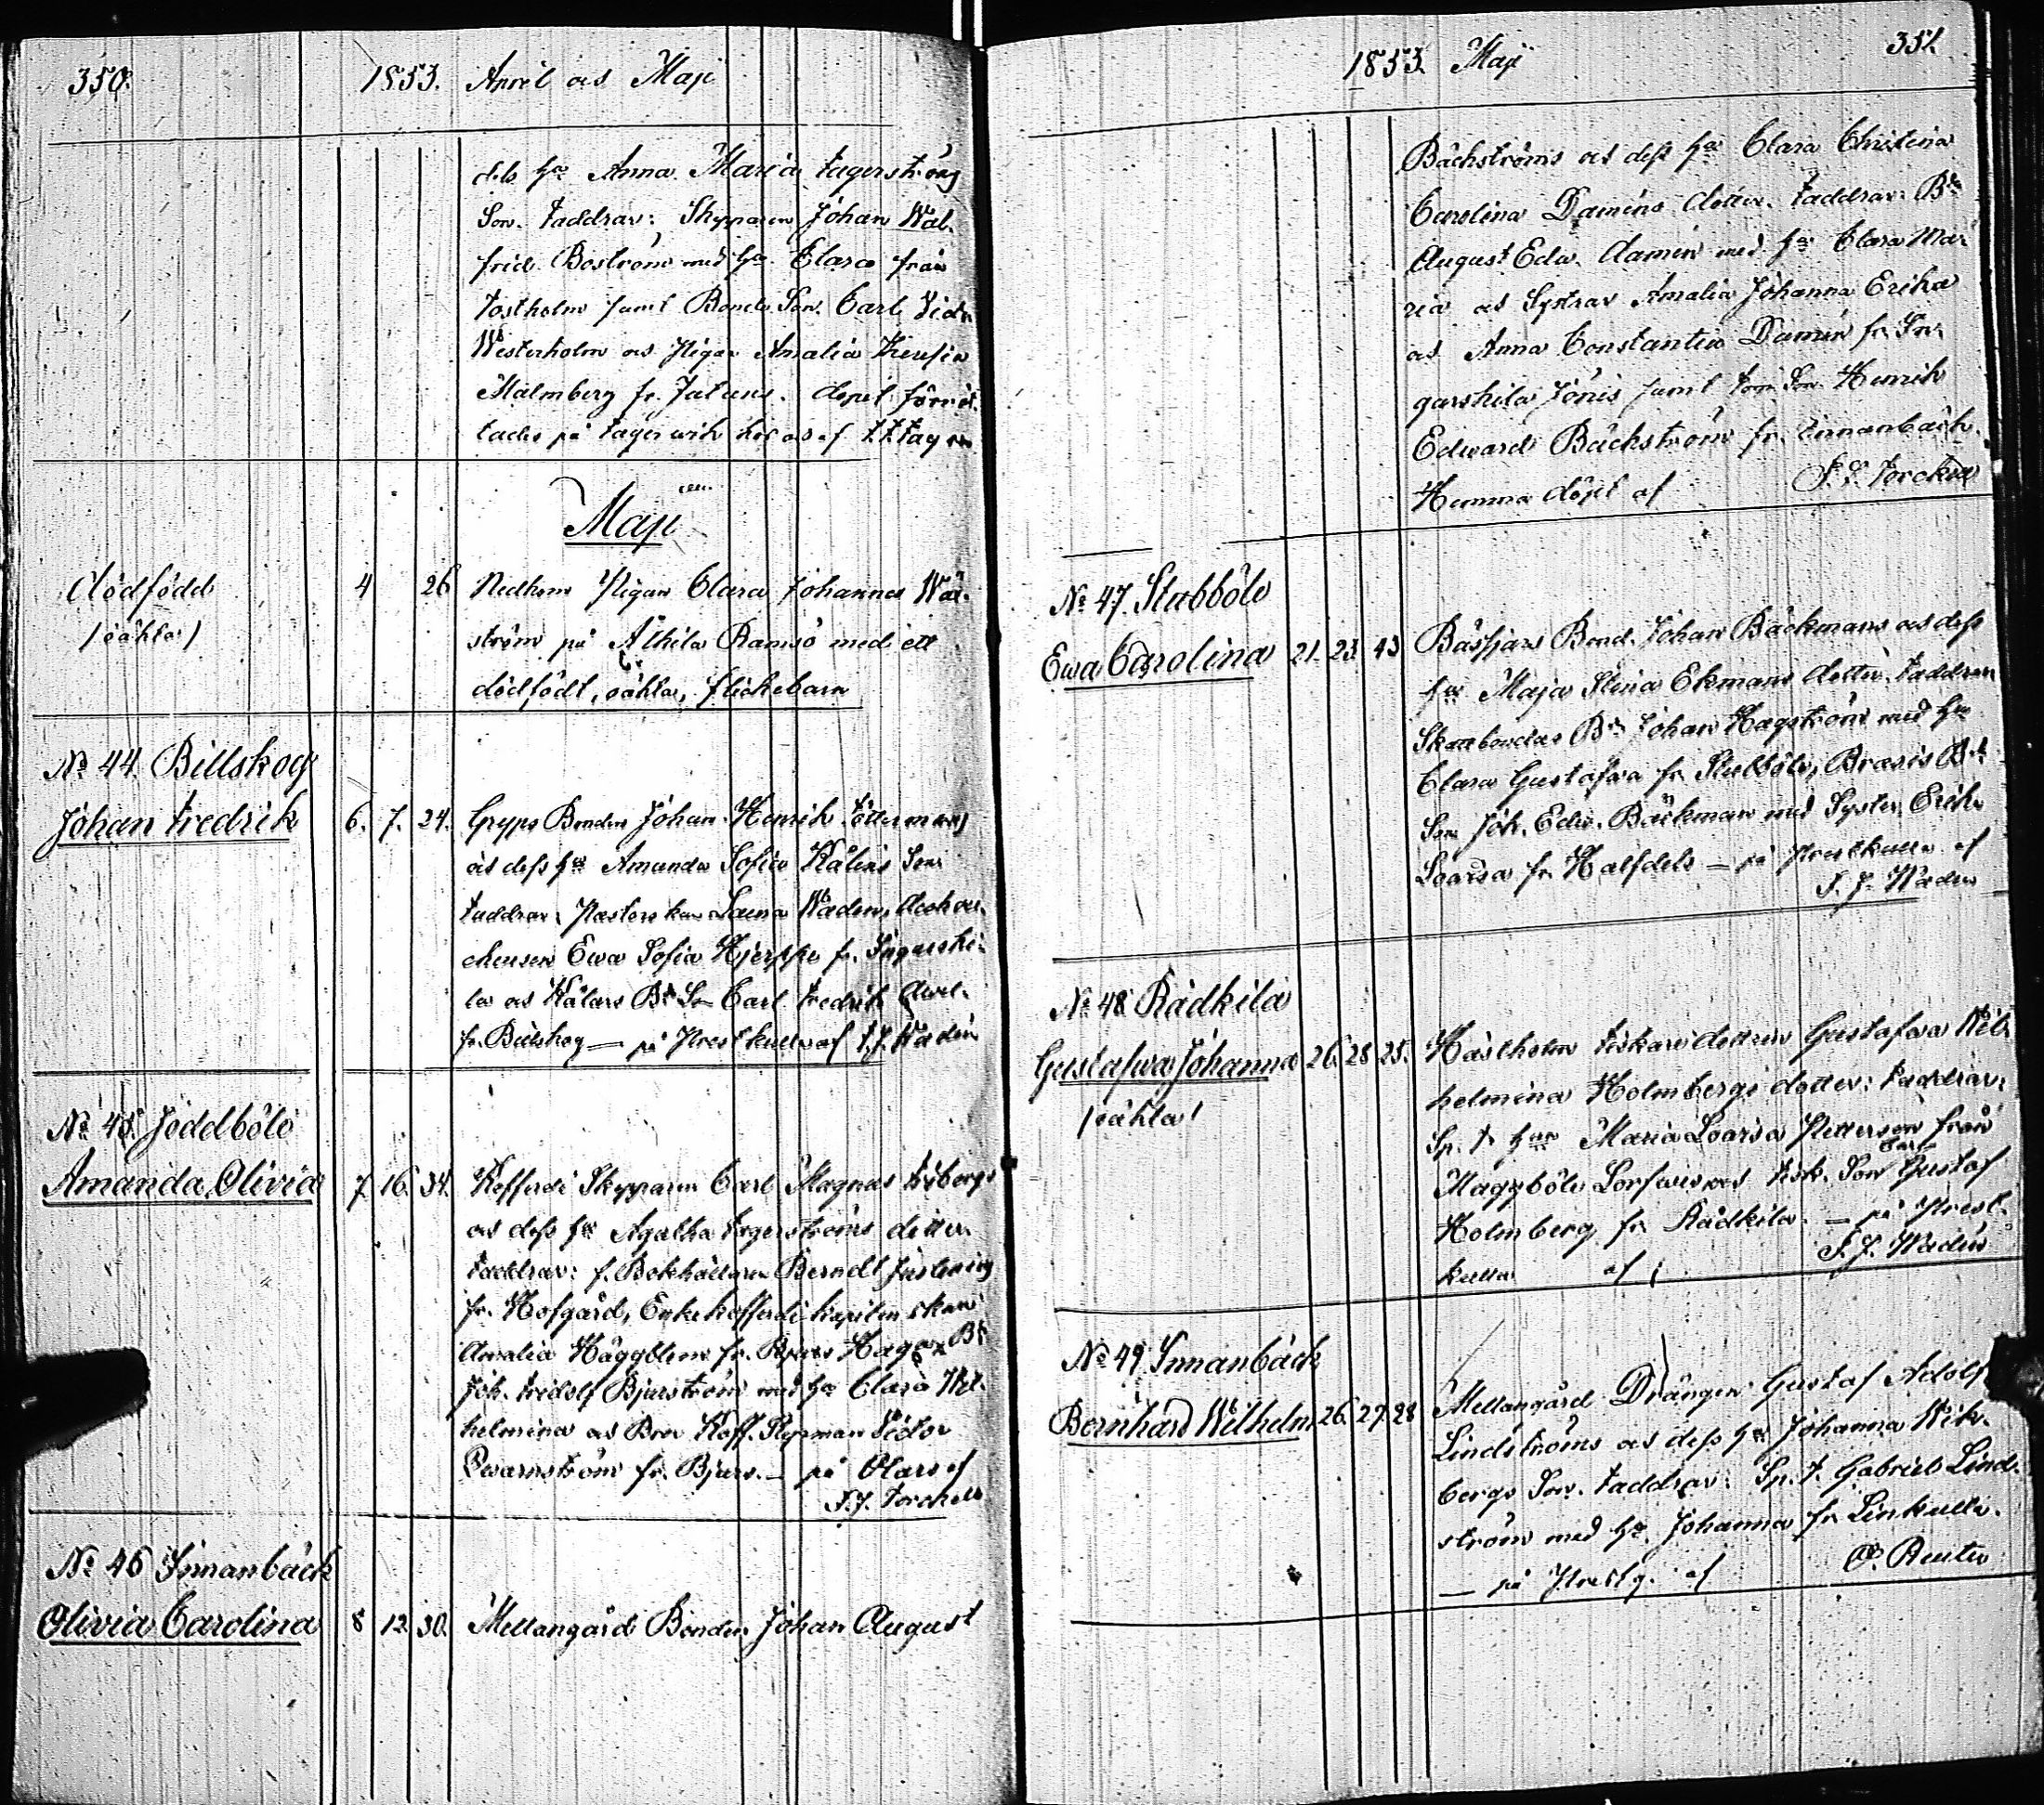 350. 1853. April och Maji
dels h:u Anna Maria Fagerströms
Son. Faddrar: Skepparen Johan Wal-
frid Boström med h:u Clara från
samt Bonde Son Carl
Westerholm och Pigan Amalia
Malmberg fr.
tades på af
Maji
Dödfödd 4 26 Nedkom Pigan Clara Johanna
/oäkta/ ström på Åkila Ramsö med ett
dödfödt, oäkta, flickebarn
No 44. Billskog
Johan Fredrik 6. 7. 24. Gryps Bonden Johan Henrik Töttermans
och dess h:u Amanda Sofia Kålens Son
Faddrar: Wadén,
Ewa Sofia Hjerppe fr. Ingarski-
la och Kålars B:de Son Carl Fredrik
fr. Billskog — på Prestkulla af F. J. Wadén
No 45. Söddböle
Amanda Olivia 7. 16. 34. Kofferdi Skepparen Carl Magnus Fribergs
och dess h:u Agatha Fagerströms dotter
Faddrar: f. Bokhållaren Berndt
fr. Hofgård, Enke kofferdi kapitenskan
Amalia Häggblom fr. Bjurs Haga, B:de
Joh. Fridolf Bjurström med h:u Clara Wil-
helmina och Bror Koff. Styrman Victor
Qwarnström fr. Bjurs. — på Olars af
F. J. Forsman
No 46 Innanbäck
Olivia Carolina 8 12. 30. Mellangård Bonden Johan August
1853. Maji 351.
Bäckströms och dess h:u Clara Christina
Carolina Daméns dotter. Faddrar: B:de
August Edw. Damén med h:u Clara Ma-
ria och Systrar Amalia Johanna Erika
och Anna Constantia Damén fr. In-
garskila Jönis samt Son Henrik
Edward Bäckström fr. Innanbäck.
Hemma döpt af
No 47. Stubböle
Ewa Carolina 21. 23. 43 Bond. Johan Bäckmans och dess
h:u Maja Stina Ekmans dotter. Faddrar
Skattbondas B:de Johan Hagström med h:u
Clara Gustafwa fr. Stubböle, B:de
Son Joh. Edw. Bäckman med Syster Erika
Lovisa fr. Halfdels — på Prestkulla af
F. J. Wadén
No 48 Rådkila
Gustafwa Johanna 26. 28 25. Hästholm Fiskaredottren Gustafwa Wil-
/oäkta/ helmina Holmbergs dotter: Faddrar:
Sp. T. h:u Maria Lovisa Pettersson från
Maggböle och Fisk. Son Carl Gustaf
Holmberg fr. Rådkila. — på Prest-
kulla af F. J. Wadén
No 49. Innanbäck
Bernhard Wilhelm 26. 27. 28 Mellangård Drängen Gustaf Adolf
Lindströms och dess h:u Johanna Wik-
bergs Son. Faddrar: Sp. T. Gabriel Lind-
ström med h:u Johanna fr. Linkulla.
— på Prestg. af O. Reuter